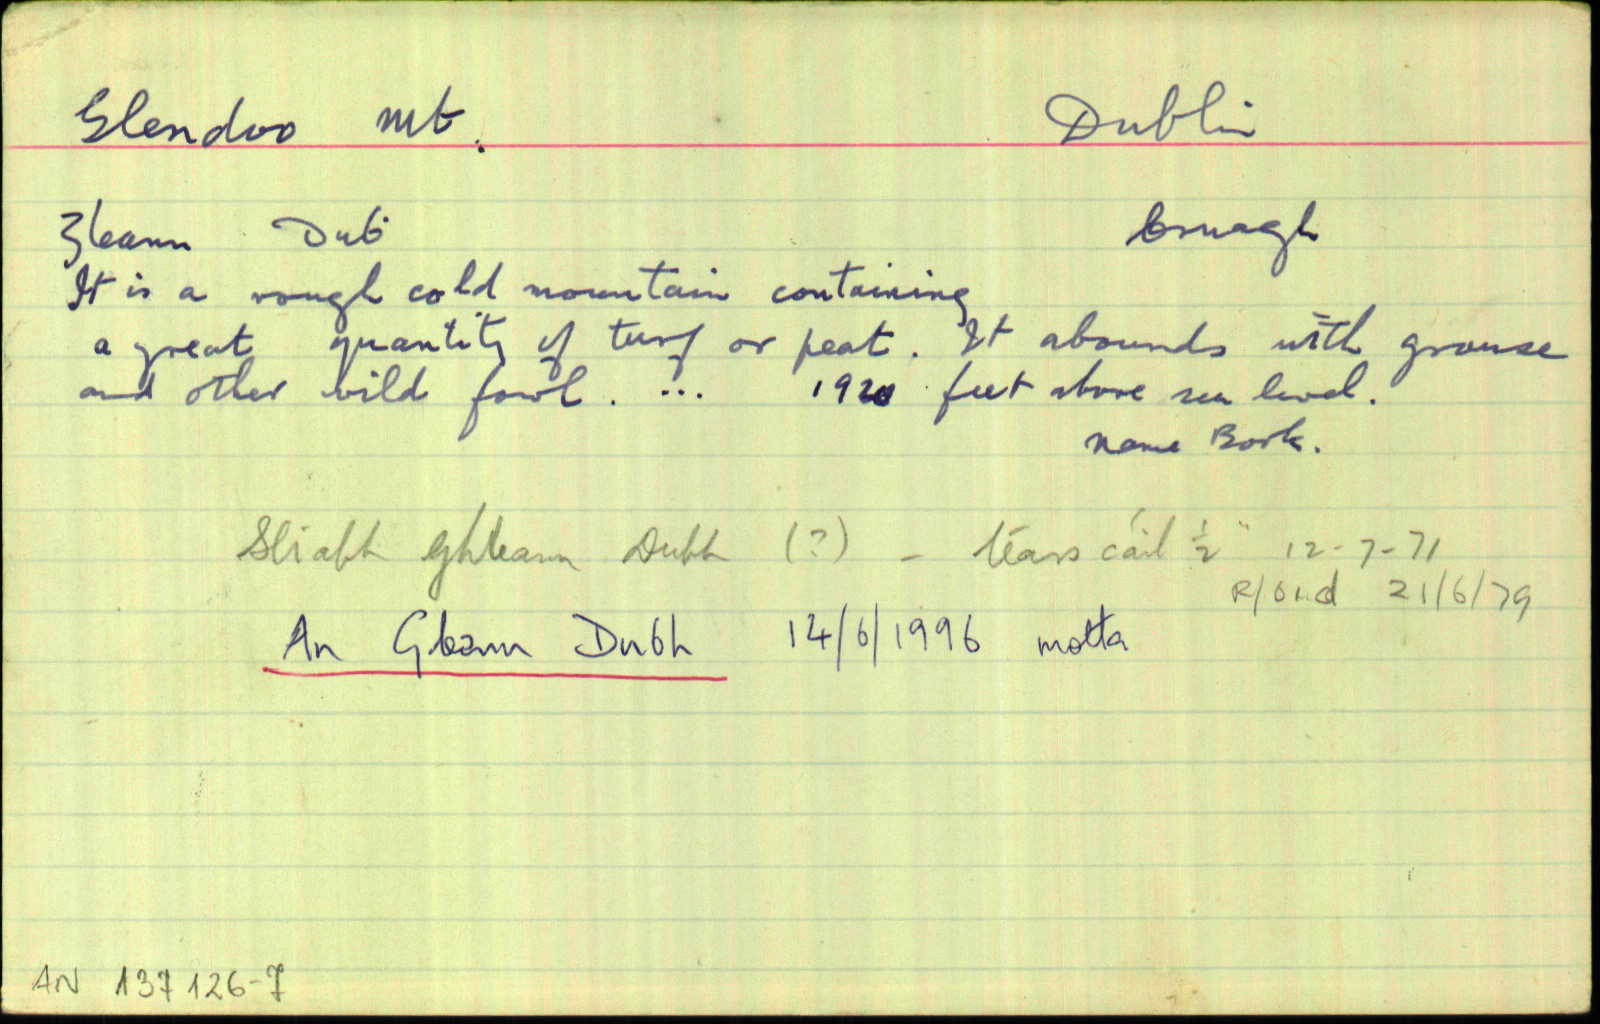 Glendoo Mt. Dublin
Gleann Duḃ Cruagh
It is a rough cold mountain containing
a great quantity of turf or peat. It abounds with grouse
and other wild fowl. ... 1920 feet above sea level.
Name Book.
Sliabh Ghleann Dubh (?) - léarscáil ½" 12-7-71
21/6/79
An Gleann Dubh 14/6/1996 molta
AN 137 126-7